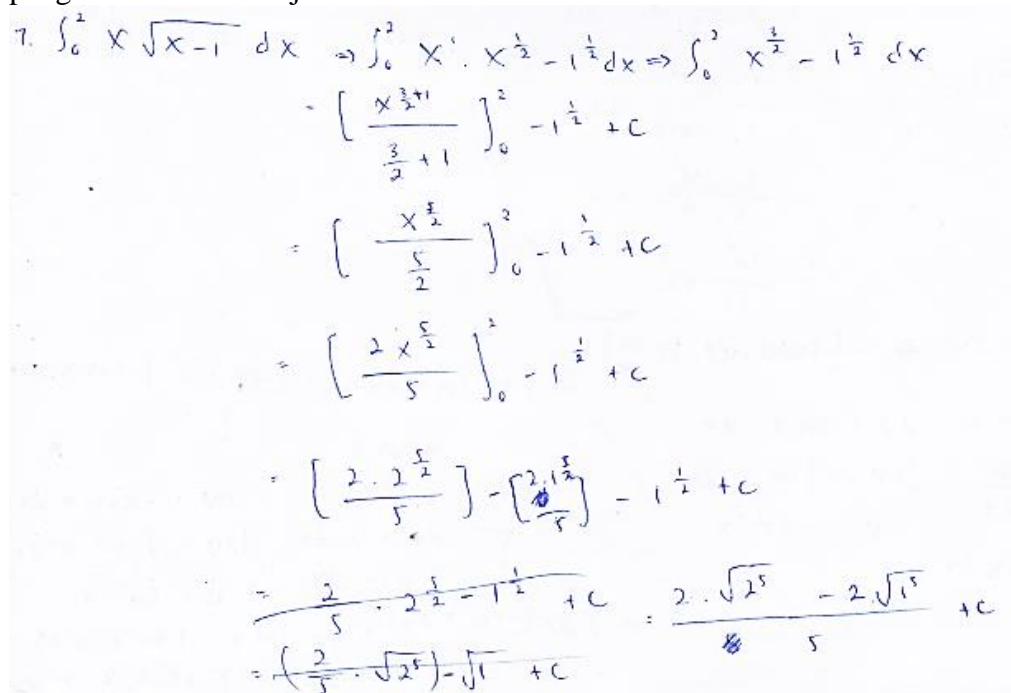 7. ∫₀² x √(x-1) dx ⇒ ∫₀² x¹ · x^(1/2) - 1^(1/2) dx ⇒ ∫₀² x^(3/2) - 1^(1/2) dx
= [ x^(3/2+1) / (3/2 + 1) ]₀² - 1^(1/2) + C
= [ x^(5/2) / (5/2) ]₀² - 1^(1/2) + C
= [ 2x^(5/2) / 5 ]₀² - 1^(1/2) + C
= [ 2 · 2^(5/2) / 5 ] - [ 2 · 1^(5/2) / 5 ] - 1^(1/2) + C
= 2/5 · 2^(5/2) - 1^(1/2) + C = (2 · √2⁵ - 2 · √1⁵) / 5 + C
= (2/5 · √2⁵) - √1 + C